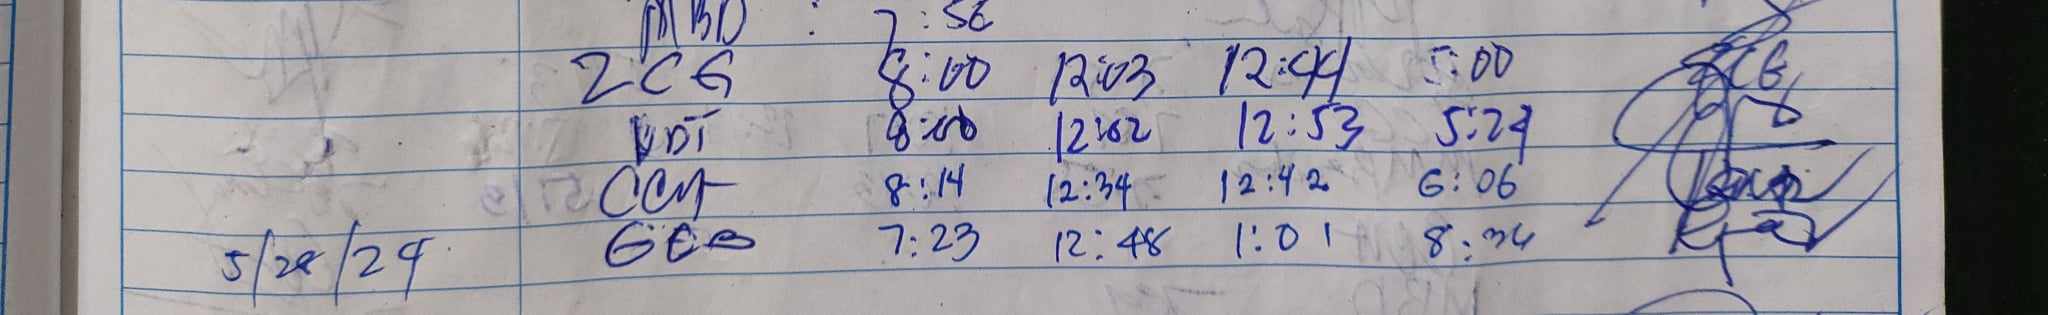 MBD : 7:56
ZCG 8:00 12:03 12:44 5:00 ZCG
VDT 8:00 12:02 12:53 5:24
CCA 8:14 12:34 12:42 6:06
5/28/24 GEB 7:23 12:48 1:01 8:34